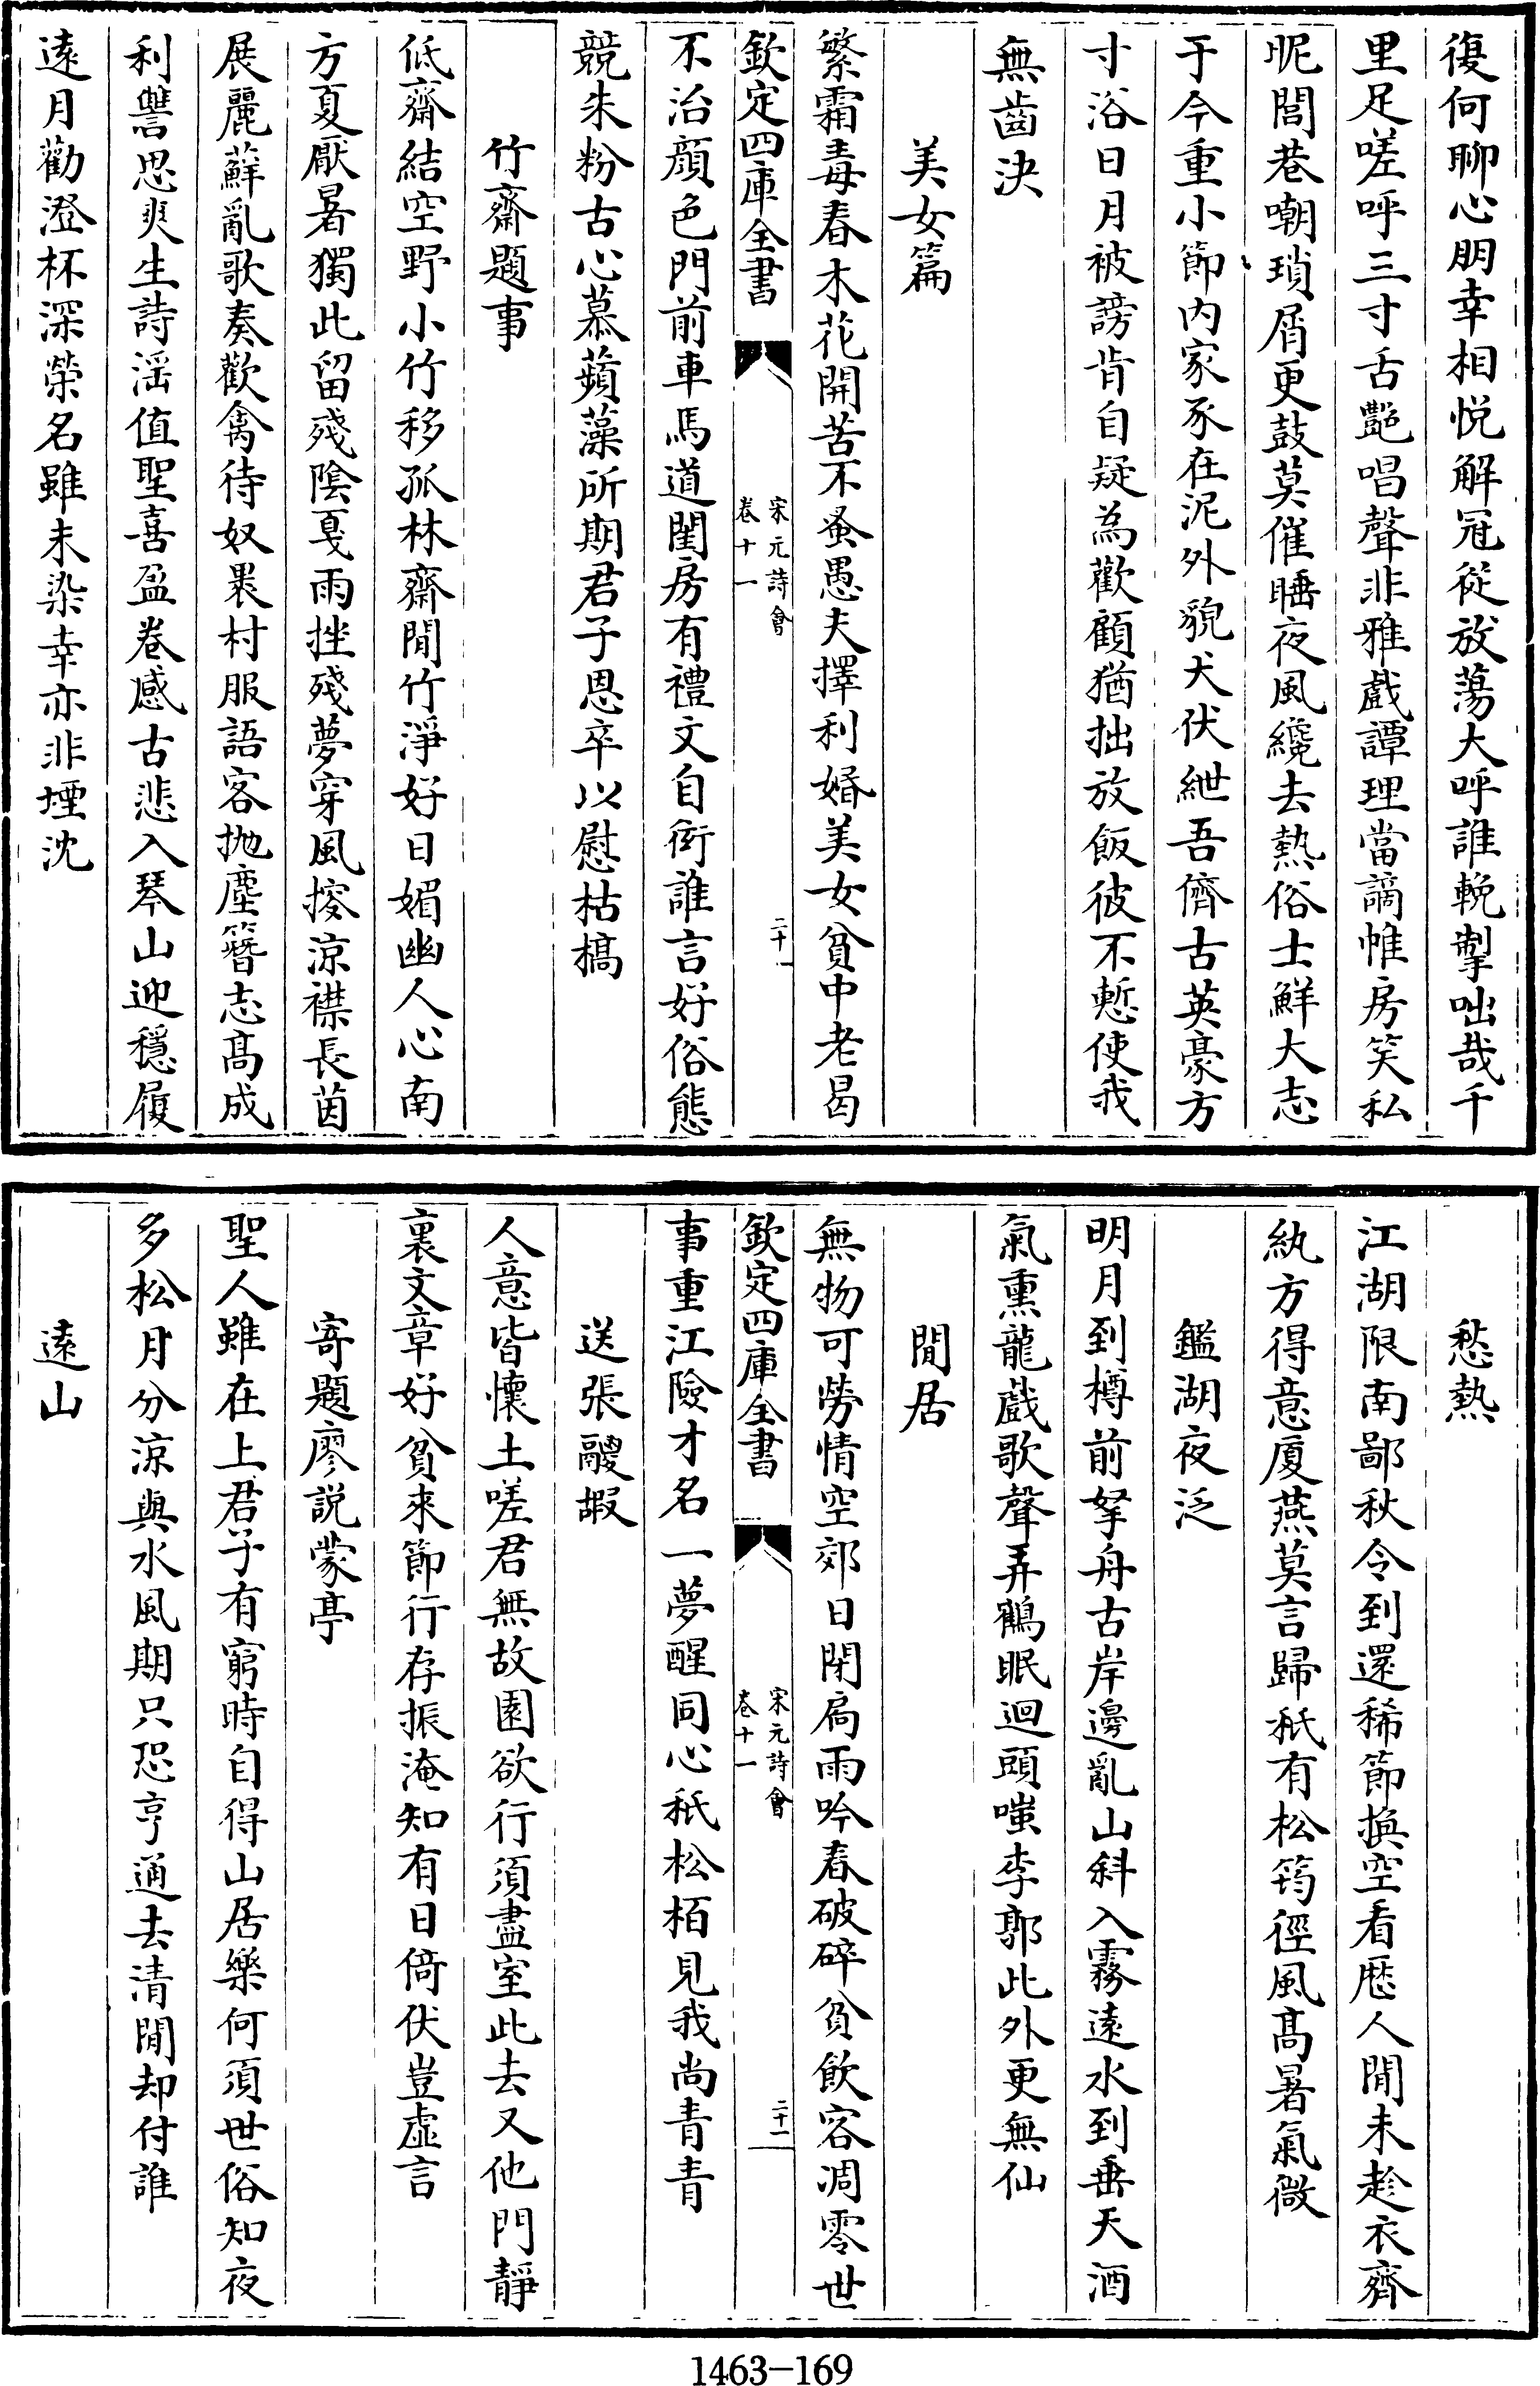 復何聊心朋幸相悅解冠從放蕩大呼誰輓掣咄哉千
里足嗟呼三寸舌艷唱聲非雅戲譚理當謫帷房笑私
昵閭巷嘲瑣屑更鼓莫催睡夜風纔去熱俗士鮮大志
于今重小節內家豕在泥外貌犬伏紲吾儕古英豪方
寸浴日月被謗肯自疑為歡顧猶拙放飯彼不慙使我
無齒決
美女篇
繁霜毒春木花開苦不蚤愚夫擇利婚美女貧中老曷
欽定四庫全書
宋元詩會
卷十一
二十一
不治顏色門前車馬道閨房有禮文自衒誰言好俗態
競朱粉古心慕蘋藻所期君子恩卒以慰枯槁
竹齋題事
低齋結空野小竹移孤林齋閒竹淨好日媚幽人心南
方夏厭暑獨此留殘陰戛雨挫殘夢穿風接涼襟長茵
展麗蘚亂歌奏歡禽待奴裹村服語客拋塵簪志高成
利讐思爽生詩滛值聖喜盈卷感古悲入琴山迎穩履
遠月勸澄杯深榮名雖未染幸亦非堙沈
愁熱
江湖限南鄙秋令到還稀節換空看厯人閒未趁衣齊
紈方得意厦燕莫言歸秖有松筠徑風高暑氣微
鑑湖夜泛
明月到樽前拏舟古岸邊亂山斜入霧遠水到垂天酒
氣熏龍戲歌聲弄鶴眠迴頭嗤李郭此外更無仙
閒居
無物可勞情空郊日閉扃雨吟春破碎貧飲客凋零世
欽定四庫全書
宋元詩會
卷十一
二十一
事重江險才名一夢醒同心秖松栢見我尚青青
送張䜱嘏
人意皆懷土嗟君無故園欲行須盡室此去又他門靜
裏文章好貧來節行存振淹知有日倚伏豈虛言
寄題廖說蒙亭
聖人雖在上君子有窮時自得山居樂何須世俗知夜
多松月分涼與水風期只恐亨通去清閒却付誰
遠山
1463-169